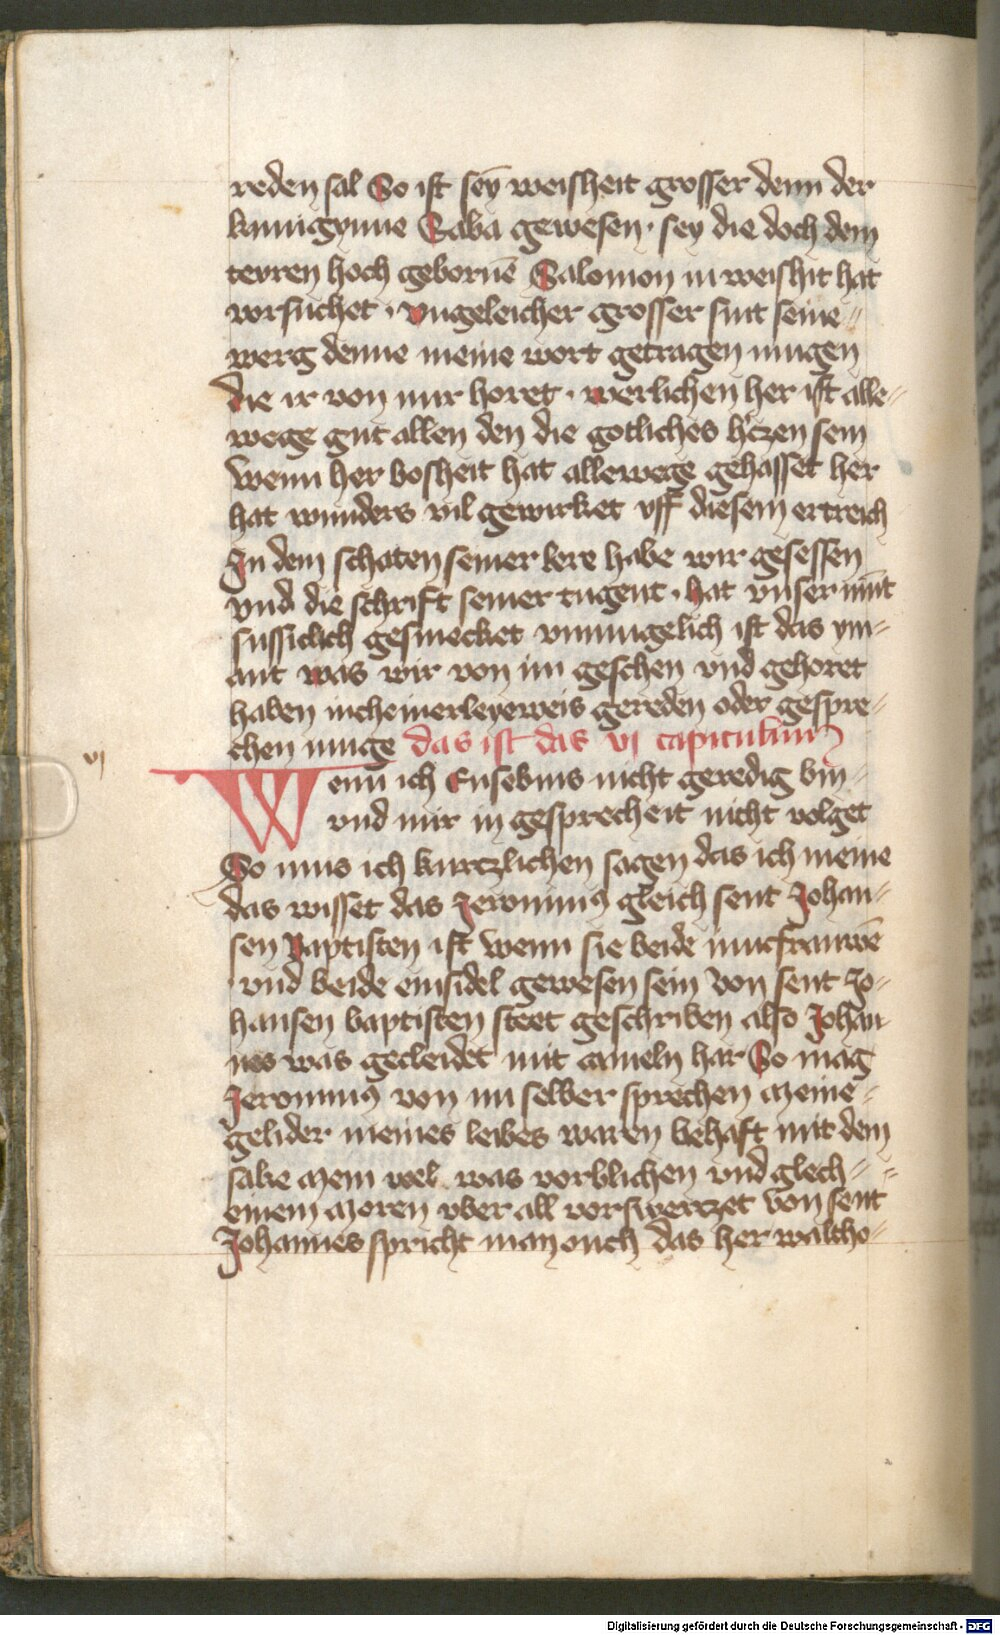 reden sal So ist sey̅ weisheit grosser denn der
kunnigynne Saba gewesen · sey die doch dem
tewren hoch geborne̅ Salomon in weishit hat
vorsuchet · vngeleicher grosser sint seine
werg denne meine wort getragen mugen
die ir von mir horet · werlichen her ist alle-
wege gut allen den die gotliches h'czen sein
wenn her bosheit hat allewege gehasset her
hat wunders vil gewirket vff diesem ertreich
In dem schaten seiner lere habe wir gesessen
vnd die schrift seiner tugent · hat vnser mu̅t
sussiclich gesmecket vnmugelich ist das ym-
ant was wir von im gesehen vnd gehoret
haben incheinerleyeweis gereden oder gespre-
chen muge das ist das vj capitulum
vj
Wenn ich Eusebius nicht geredig bin
vnd mir in gesprecheit nicht volget
So mus ich kurczlichen sagen das ich meine
das wisset das Jeronimus gleich sent Johan-
sen Baptisten ist wenn sie beide iuncfrauwe̅
vnd beide einsidel gewesen sein von sent Jo-
hansen baptisten steet geschriben also Johan
nes was gecleidet mit cameln har So mag
Jeronimus von im selber sprechen Meine
gelider meines leibes waren behaft mit dem
sake Mein vel was vorblichen vnd glech-
einem Moren vber all vorswerczet von sent
Johannes spricht man ouch das her waltho-
Digitalisierung gefördert durch die Deutsche Forschungsgemeinschaft - DFG